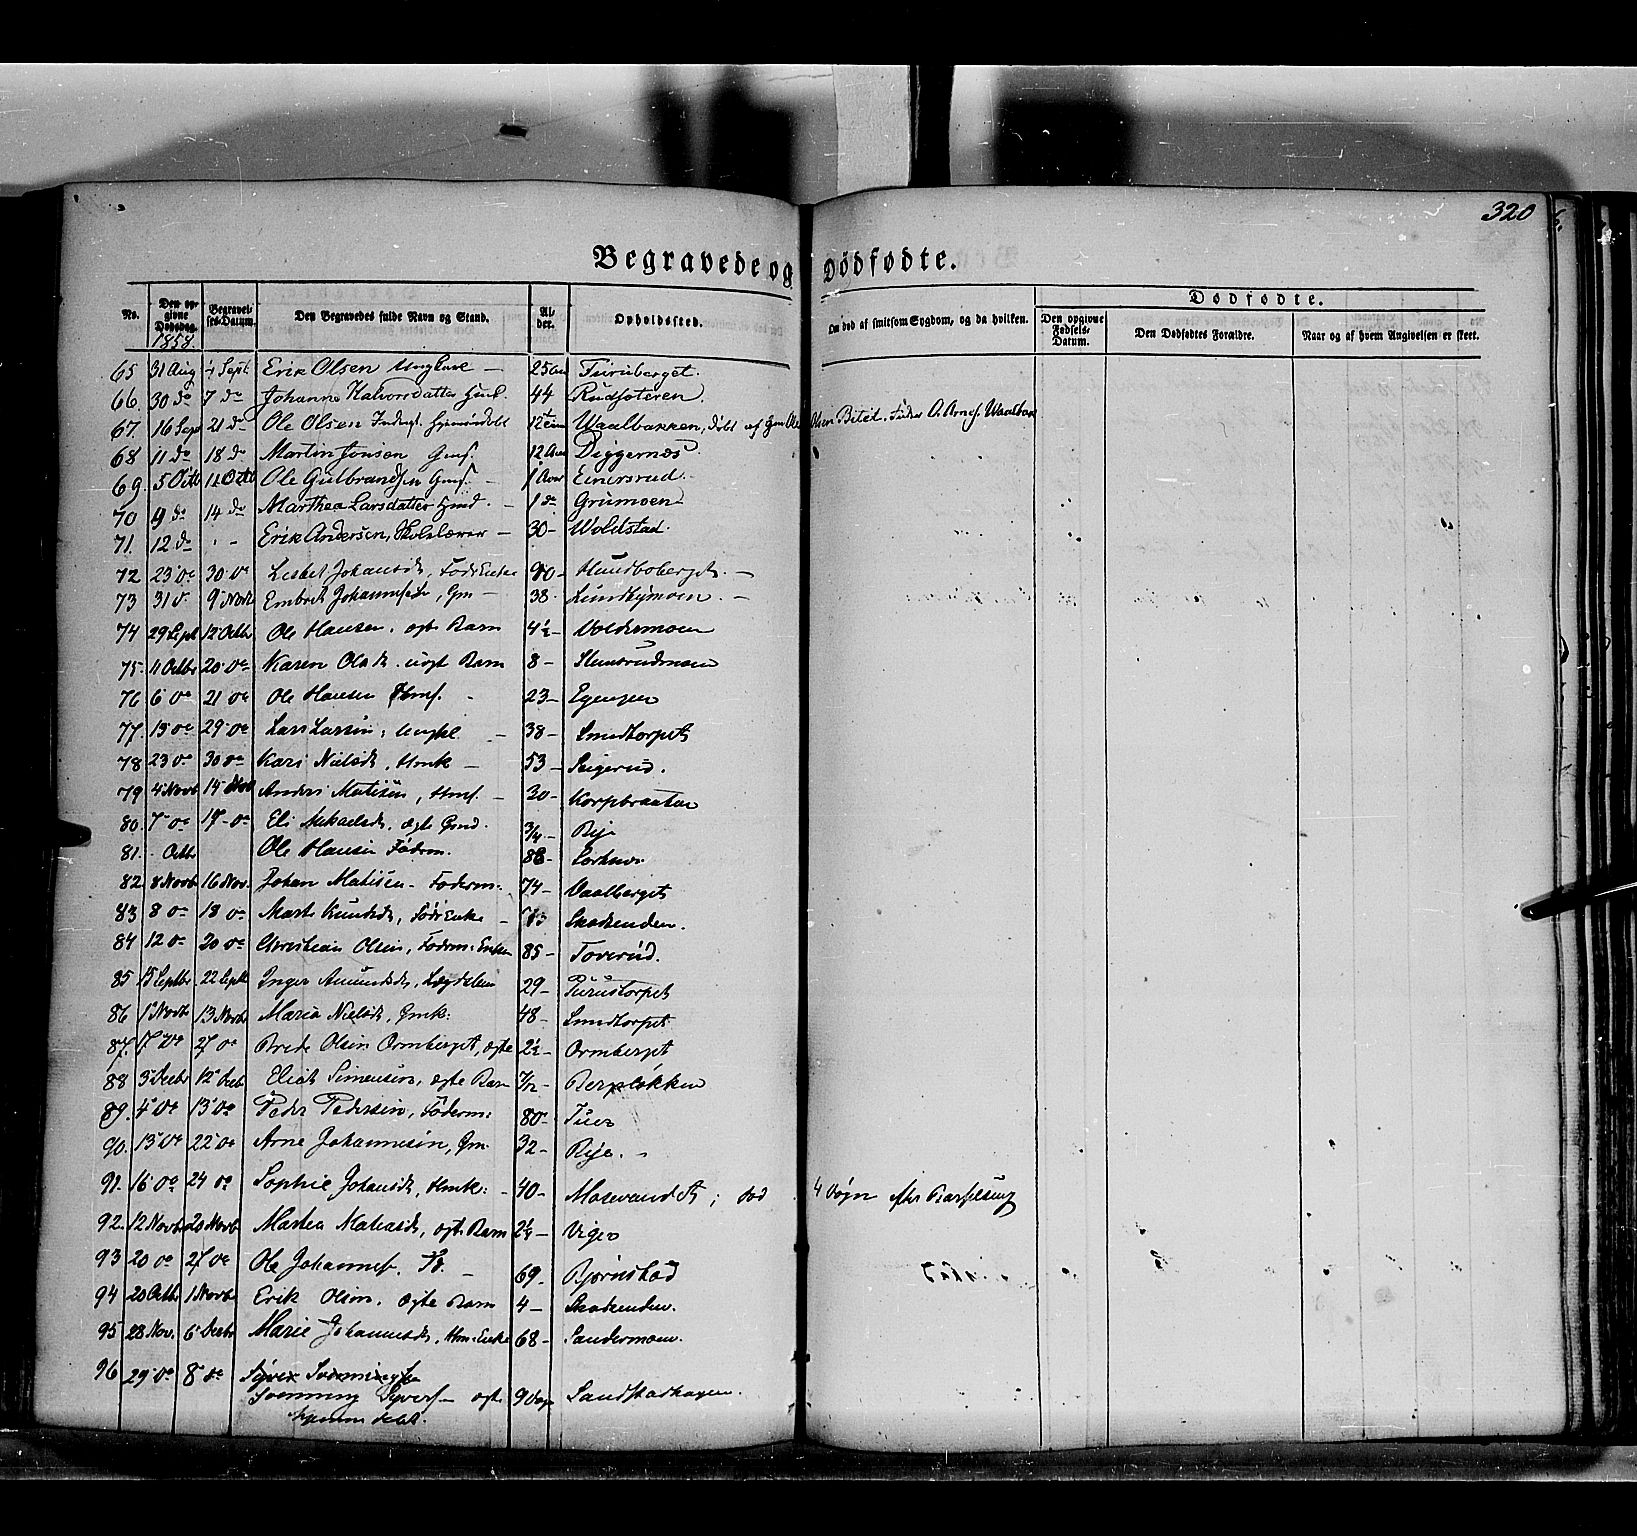 320
Begravede og Dødfødte.
No. Den opgivne Dødsdag. Begravelses-Datum. Den Begravedes fulde Navn og Stand. Alder. Opholdssted. Om død af smitsom Sygdom, og da hvilken. Dødfødte.
Den opgivne Fødsels-Datum. Den Dødfødtes Forældre. Naar og af hvem Angivelsen er skeet.
1858.
65 31 Aug 4 Sept. Erik Olsen Ungkarl — 25 Furuberget.
66. 30 do 7 do Johanne Halvorsdatter 44 Rudsæteren.
67. 16 Sept 21 do Ole Olsen 12 Waalbakken, døbt af Ole Olsen Fader O. Arnes. Waalbak
68 11 do 18 do Martin Jonsen Gmf. 12 Aar Diggernæs
69. 5 Octb 11 Octb Ole Gulbrandsen Gmf. — 1 Aar Einersrud.
70 9 do 14 do Marthea Larsdatter — 1 do Grumoen
71. 12 do Erik Andersen, Skolelærer — 30 — Woldstad.
72 23 do 30 do Lisbet Johansd., Føder Enke 90 — Hundboberget. —
73 31 d. 9 Novb Embret Johannes Gm — 38. —
74 29 Sept 12 Octb. Ole Hansen. ægte Barn 4½ — Voldermoen
75. 11 Octbr 20 do Karen Olsd. uægt Barn 8 — Stensrudmoen
76 6 do 21 do Ole Hansen Hmf. — 23 — Egensen
77 13 do 29 do Lars Larsen, Ungkl — 38 — Smedtorpet
78 23 do 30 do Kari Nielsd., Hmk — 53 — Seigerud.
79 4 Novb 15 Nov Anders Matisen, Hmf. — 30 — Korpbraaten
80. 7 do 17 do Eli Mikaelsd., ægte 3/4 — Rye
81. Octb Ole Hansen Føderm. 88 —
82 8 Novb 16 Nov. Johan Matisen — Føderm: 74 — Vaalberget
83 8 do 18 do Marte Knudsd., Føder Enke — 73 Skadsenden.
84 12 do 20 do Christian Olsen, Føderm: Enken 85 — Toverud.
85 15 Septbr 22 Septb Inger Amundsd., Lægdslem 29 — Furutorpet
86 1 Novb 13 Novb Maria Nielsd, Gmk: 48 — Smedtorpet
87. 17 do 27 do Brede Olsen Ormberget, ægte 2½ — Ormberget
88 3 Decbr 12 Decb Elias Simensen, ægte Barn 7/12 — Berpløkken
89. 4 do 13 do Peder Pedersen, Føderm: 80 — Tuer
90. 13 do 22 do Arne Johannesen, Gm. 32 — Rye. —
91. 16 do 24 do Sophie Johansd, Hmk: — 40 — Mosevandet; død 4 Døgn efter Barselseng
92. 12 Novb 20 Novb Martea Matiasd, ægte Barn 2½ — Viger
93 20 do 27 do Ole Johannes. — 69. Bjørnstad
94 20 Octb. 1 Novb Erik Olsen. ægte Barn 4 — Skadsenden.
95 28 Nov. 6 Decbr Marie Johannesd, Hm: Enke 68 — Sandermoen.
96 29 do 8 do Syver Svenningsen
Svenning Syvers. — ægte 9 Dage Sandstadhagen.
hjemmedøbt.